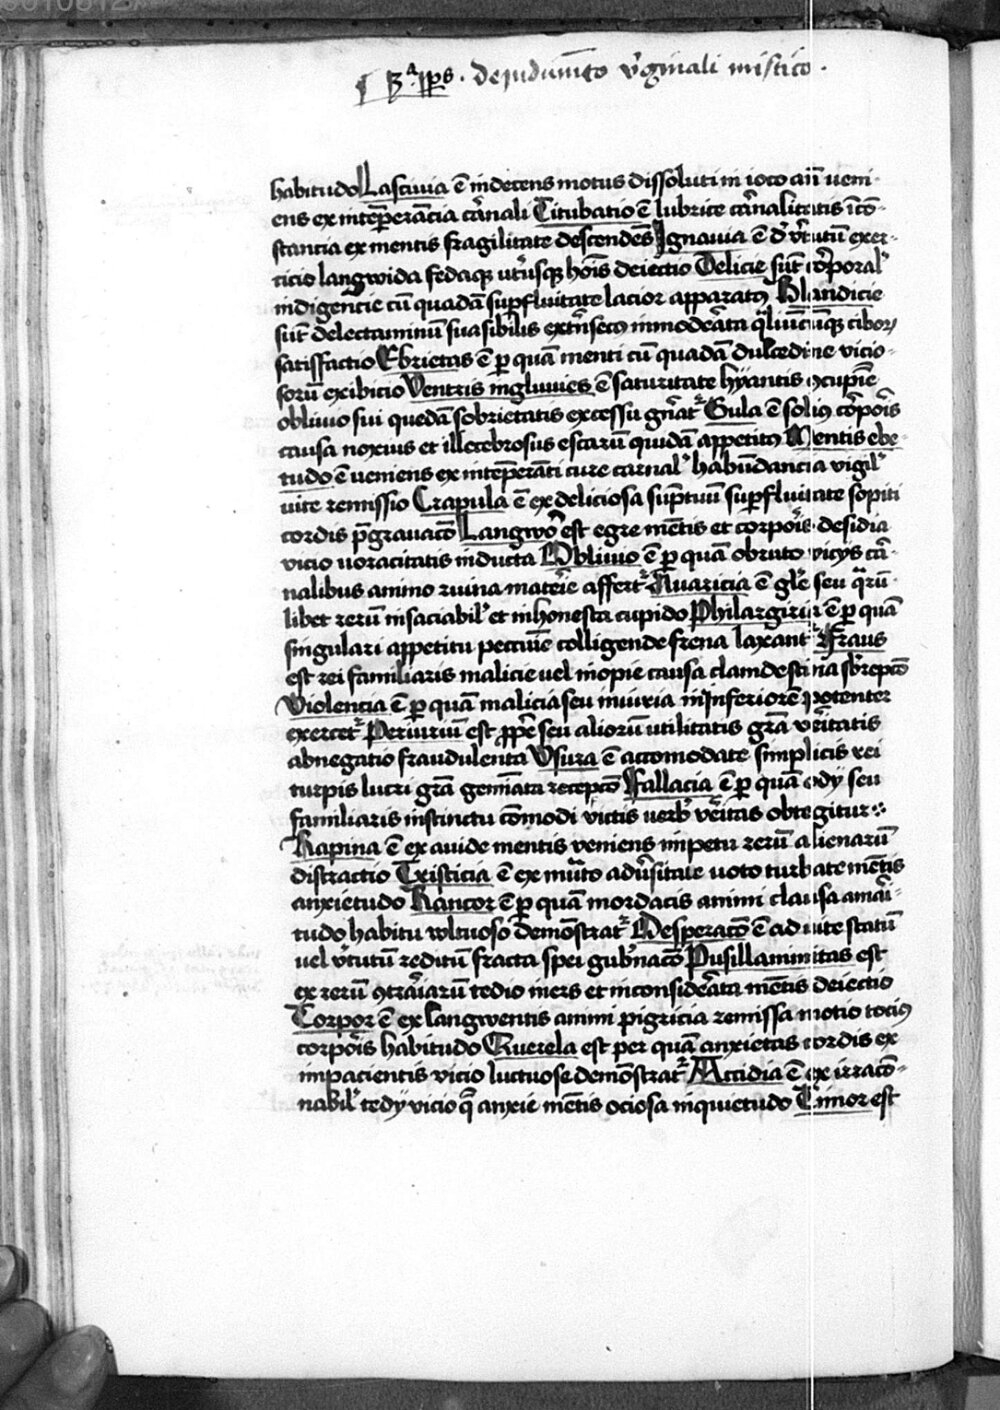 ¶ 3ª ps. de indumēto v̓ginali mistico.
habitudo Lascivia ē indecens motus dissoluti in ioco aīī veni-
ens ex intēperancia carnali Titubatio ē lubrice carnalitatis īcō-
stancia ex mentis fragilitate descendēs Ignavia ē d̓ v̓tutū exer-
ticio langwida fedaq utriusq hoīs deiectio Delicie sūt corporal̓
indigencie cū quadā supfluitate lacior apparatꝰ Blandicie
sūt delectaminū suasibilis extn̓secꝰ inmoderata q̄liūcūq ciboꝝ
satisfactio Ebrietas ē p quā menti cū quadā dulcedine vicio-
sorū exibicio Ventris ingluvies ē saturitate hyantis ꝯcupīe
oblivio sui quedā sobrietatis excessu gn̄at̓ Gula ē soliꝰ corpōis
causa noxius et illecebrosus escarū quidā appetitꝰ Mentis ebe-
tudo ē veniens ex intēperanti cure carnal̓ habūdancia vigil̓
vite remissio Crapula ē ex deliciosa sūptuū supfluitate sopiti
cordis p̄gravacō Langwor est egre mētis et corpōis desidia
vicio voracitatis inducta Oblivio ē p quā obruto vicys car-
nalibus animo ruina materie affert̓ Avaricia ē gl̄e seu q̄rū-
libet rerū insaciabil̓ et inhonesta cupido Philargiria ē p quā
singulari appetitu peccūie colligende frena laxant̓ Fraus
est rei familiaris malicie vel inopie causa clamdestina sb̓repcō
Violencia ē p quā malicia seu iniuria in inferiorē potenter
exercet̓ Periuriū est p̄p̄e seu aliorū utilitatis grā veritatis
abnegatio fraudulenta Usura ē accomodate simplicis rei
turpis lucri grā gemīata recepcō Fallacia ē p quā ody seu
familiaris instinctu cōmodi victis verb̓ veritas obtegitur
Rapina ē ex avide mentis veniens impetu rerū alienarū
distractio Tristicia ē ex multo adv̓sitate voto turbate mētis
anxietudo Rancor ē p quā mordacis animi clausa amari-
tudo habitu wltuoso demōstrat̓ Desperacō ē ad vite statū
vel v̓tutū reditū fracta spei gub̓nacō Pusillanimitas est
ex rerū ꝯtrariarū tedio iners et inconsiderata mētis deiectio
Torpor ē ex langwentis animi pigricia remissa motio tociꝰ
corpōis habitudo Querela est per quā anxietas cordis ex
impacientis vicio luctuose demōstrat̓ Accidia ē ex irracō-
nabil̓ tedy vicio q̄ anxie mētis ociosa inquietudo Timor est